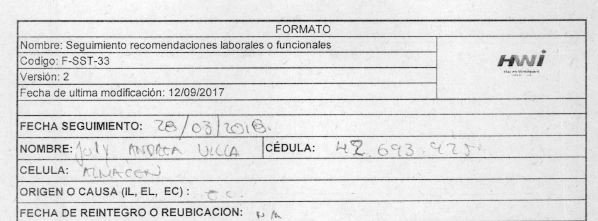 FORMATO
Nombre: Seguimiento recomendaciones laborales o funcionales
Codigo: F-SST-33
HWI
Versión: 2
Fecha de ultima modificación: 12/09/2017
FECHA SEGUIMIENTO: 28/03/2018.
NOMBRE: July ANDREA VILLA CÉDULA: 42.693.925.
CELULA: ALMACEN
ORIGEN O CAUSA (IL, EL, EC) : EC.
FECHA DE REINTEGRO O REUBICACION: N/A